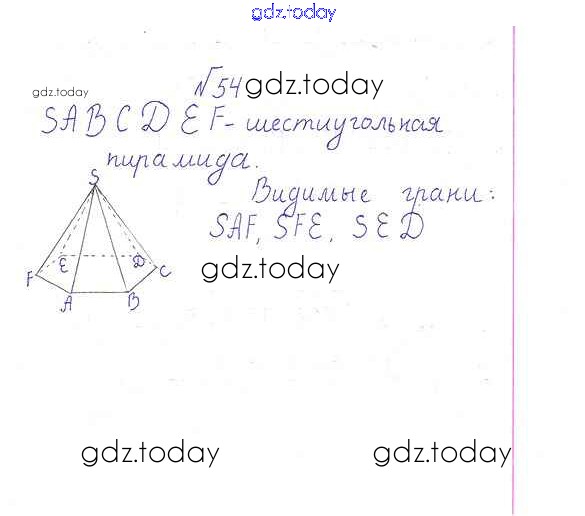 gdz.today
gdz.today
№54 gdz.today
SABCDEF- шестиугольная
пирамида.
S
Видимые грани:
SAF, SFE, SED
gdz.today
E
D
C
F
A
B
gdz.today
gdz.today